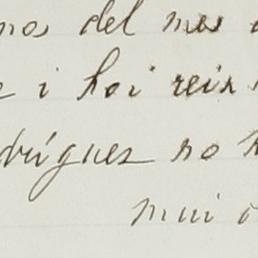 nos del mes
i hoi reix
drígues no
mui